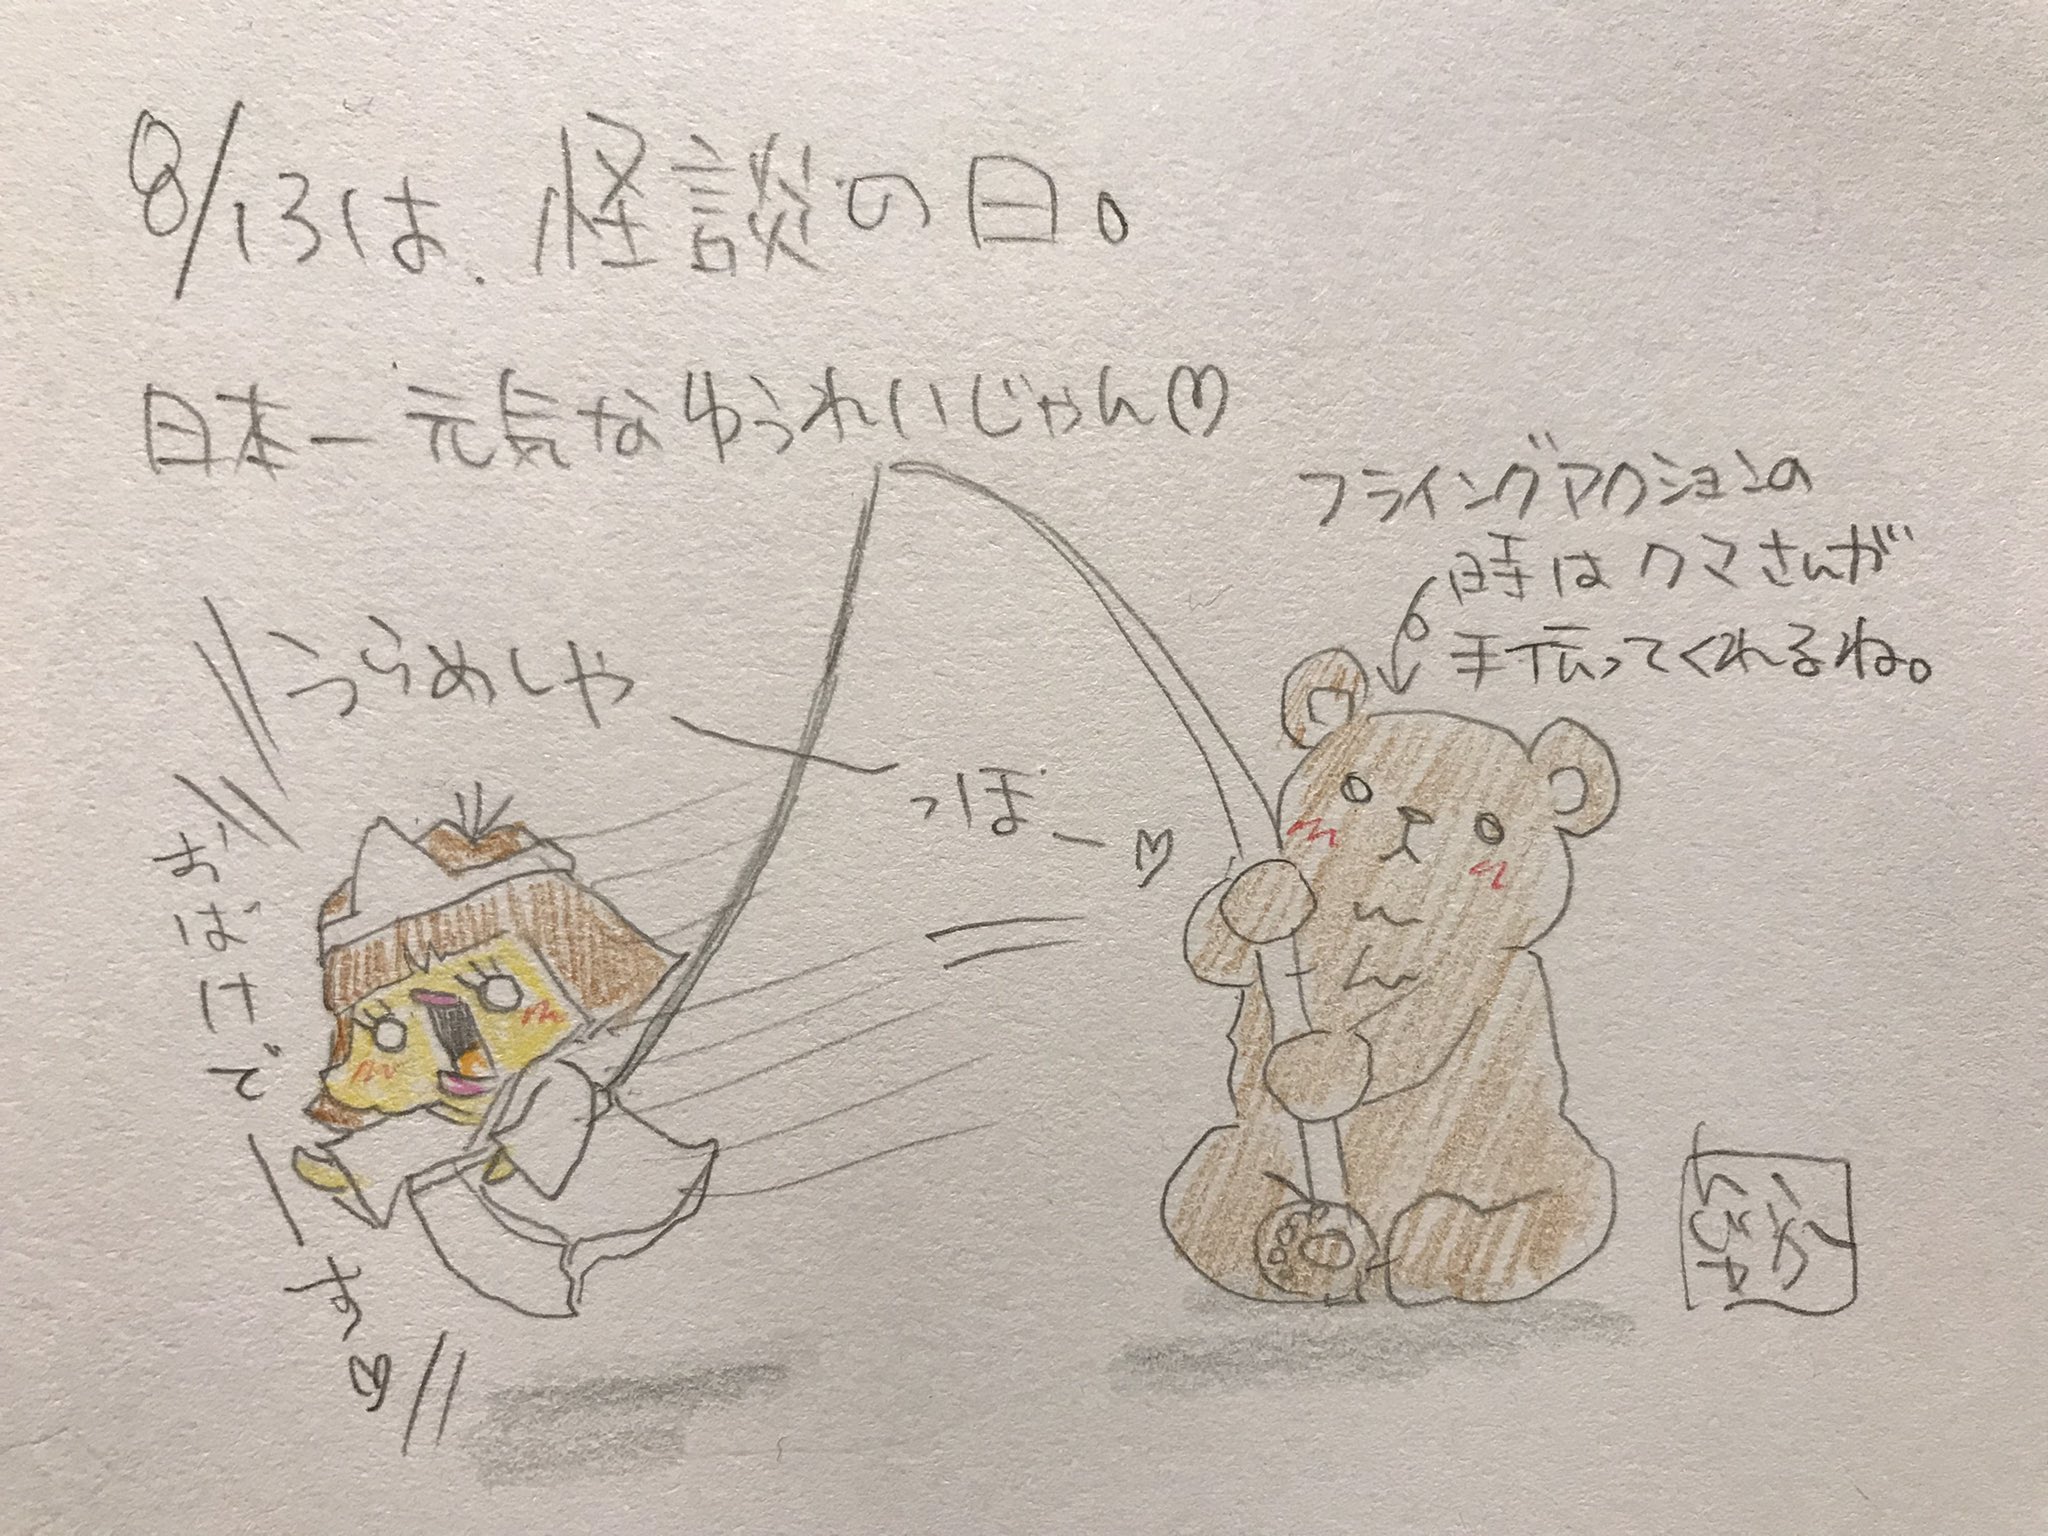 8/13は、怪談の日。
日本一元気なゆうれいじゃん♡
フライングアクションの
時はクマさんが
手伝ってくれるね。
うらめしやーっぽー♡
おばけでーす♡